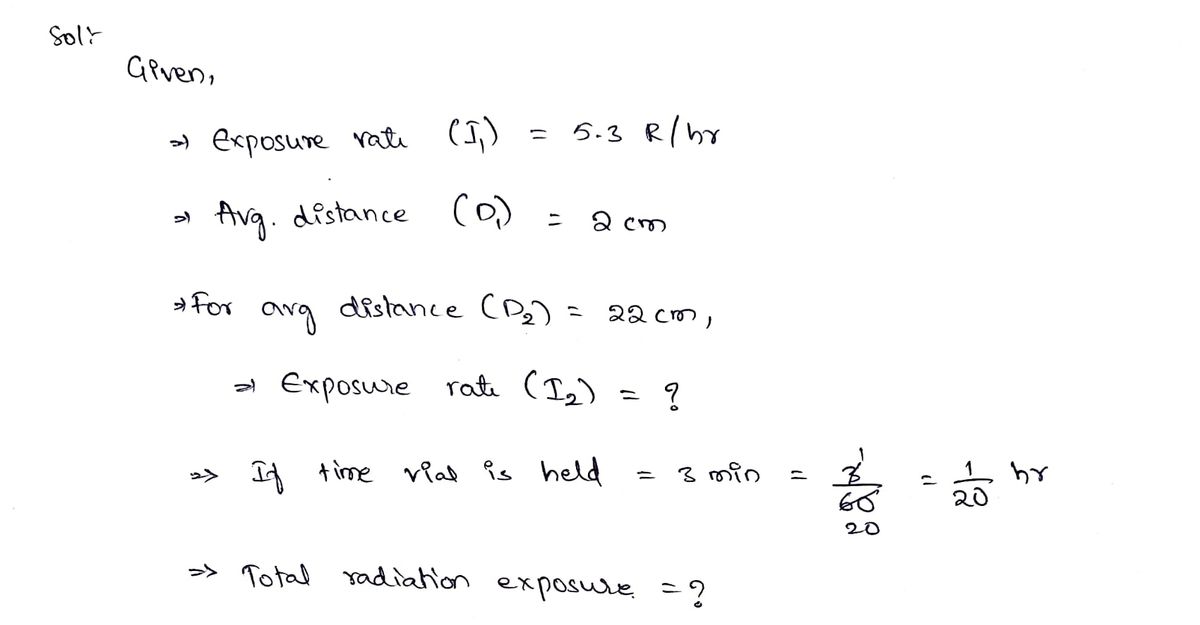 Sol:-
Given,
⇒ Exposure rate (I₁) = 5.3 R/hr
⇒ Avg. distance (D₁) = 2 cm
⇒ For avg distance (D₂) = 22 cm,
⇒ Exposure rate (I₂) = ?
⇒ If time vial is held = 3 min = 3/60 1 20 = 1/20 hr
⇒ Total radiation exposure = ?